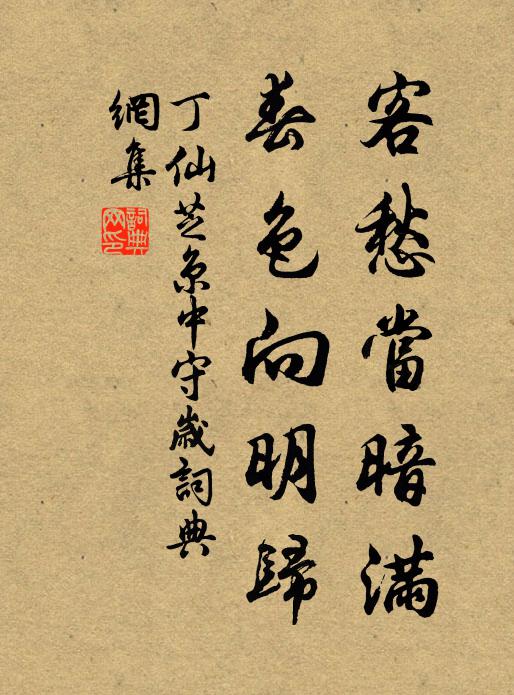 客愁當暗滿
春色向明歸
丁仙芝京中守歲詞典
網集
詞典
网印